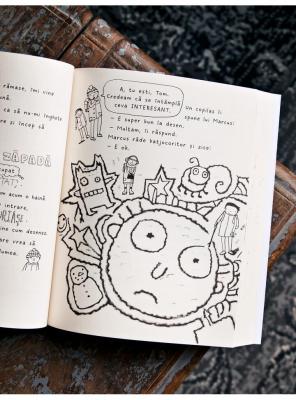 rămase, îmi vine
ună.
ca să nu-mi înghețe
are și încep să
ZĂPADĂ
upat
TAT!
om acum o haină
intrare.
ine cum desenez.
are vrea să
lumea.
A, tu ești, Tom.
Credeam că se întâmplă
ceva INTERESANT.
Un copilaș îi
spune lui Marcus:
– E super bun la desen.
– Mulțam, îi răspund.
Marcus râde batjocoritor și zice:
– E ok.